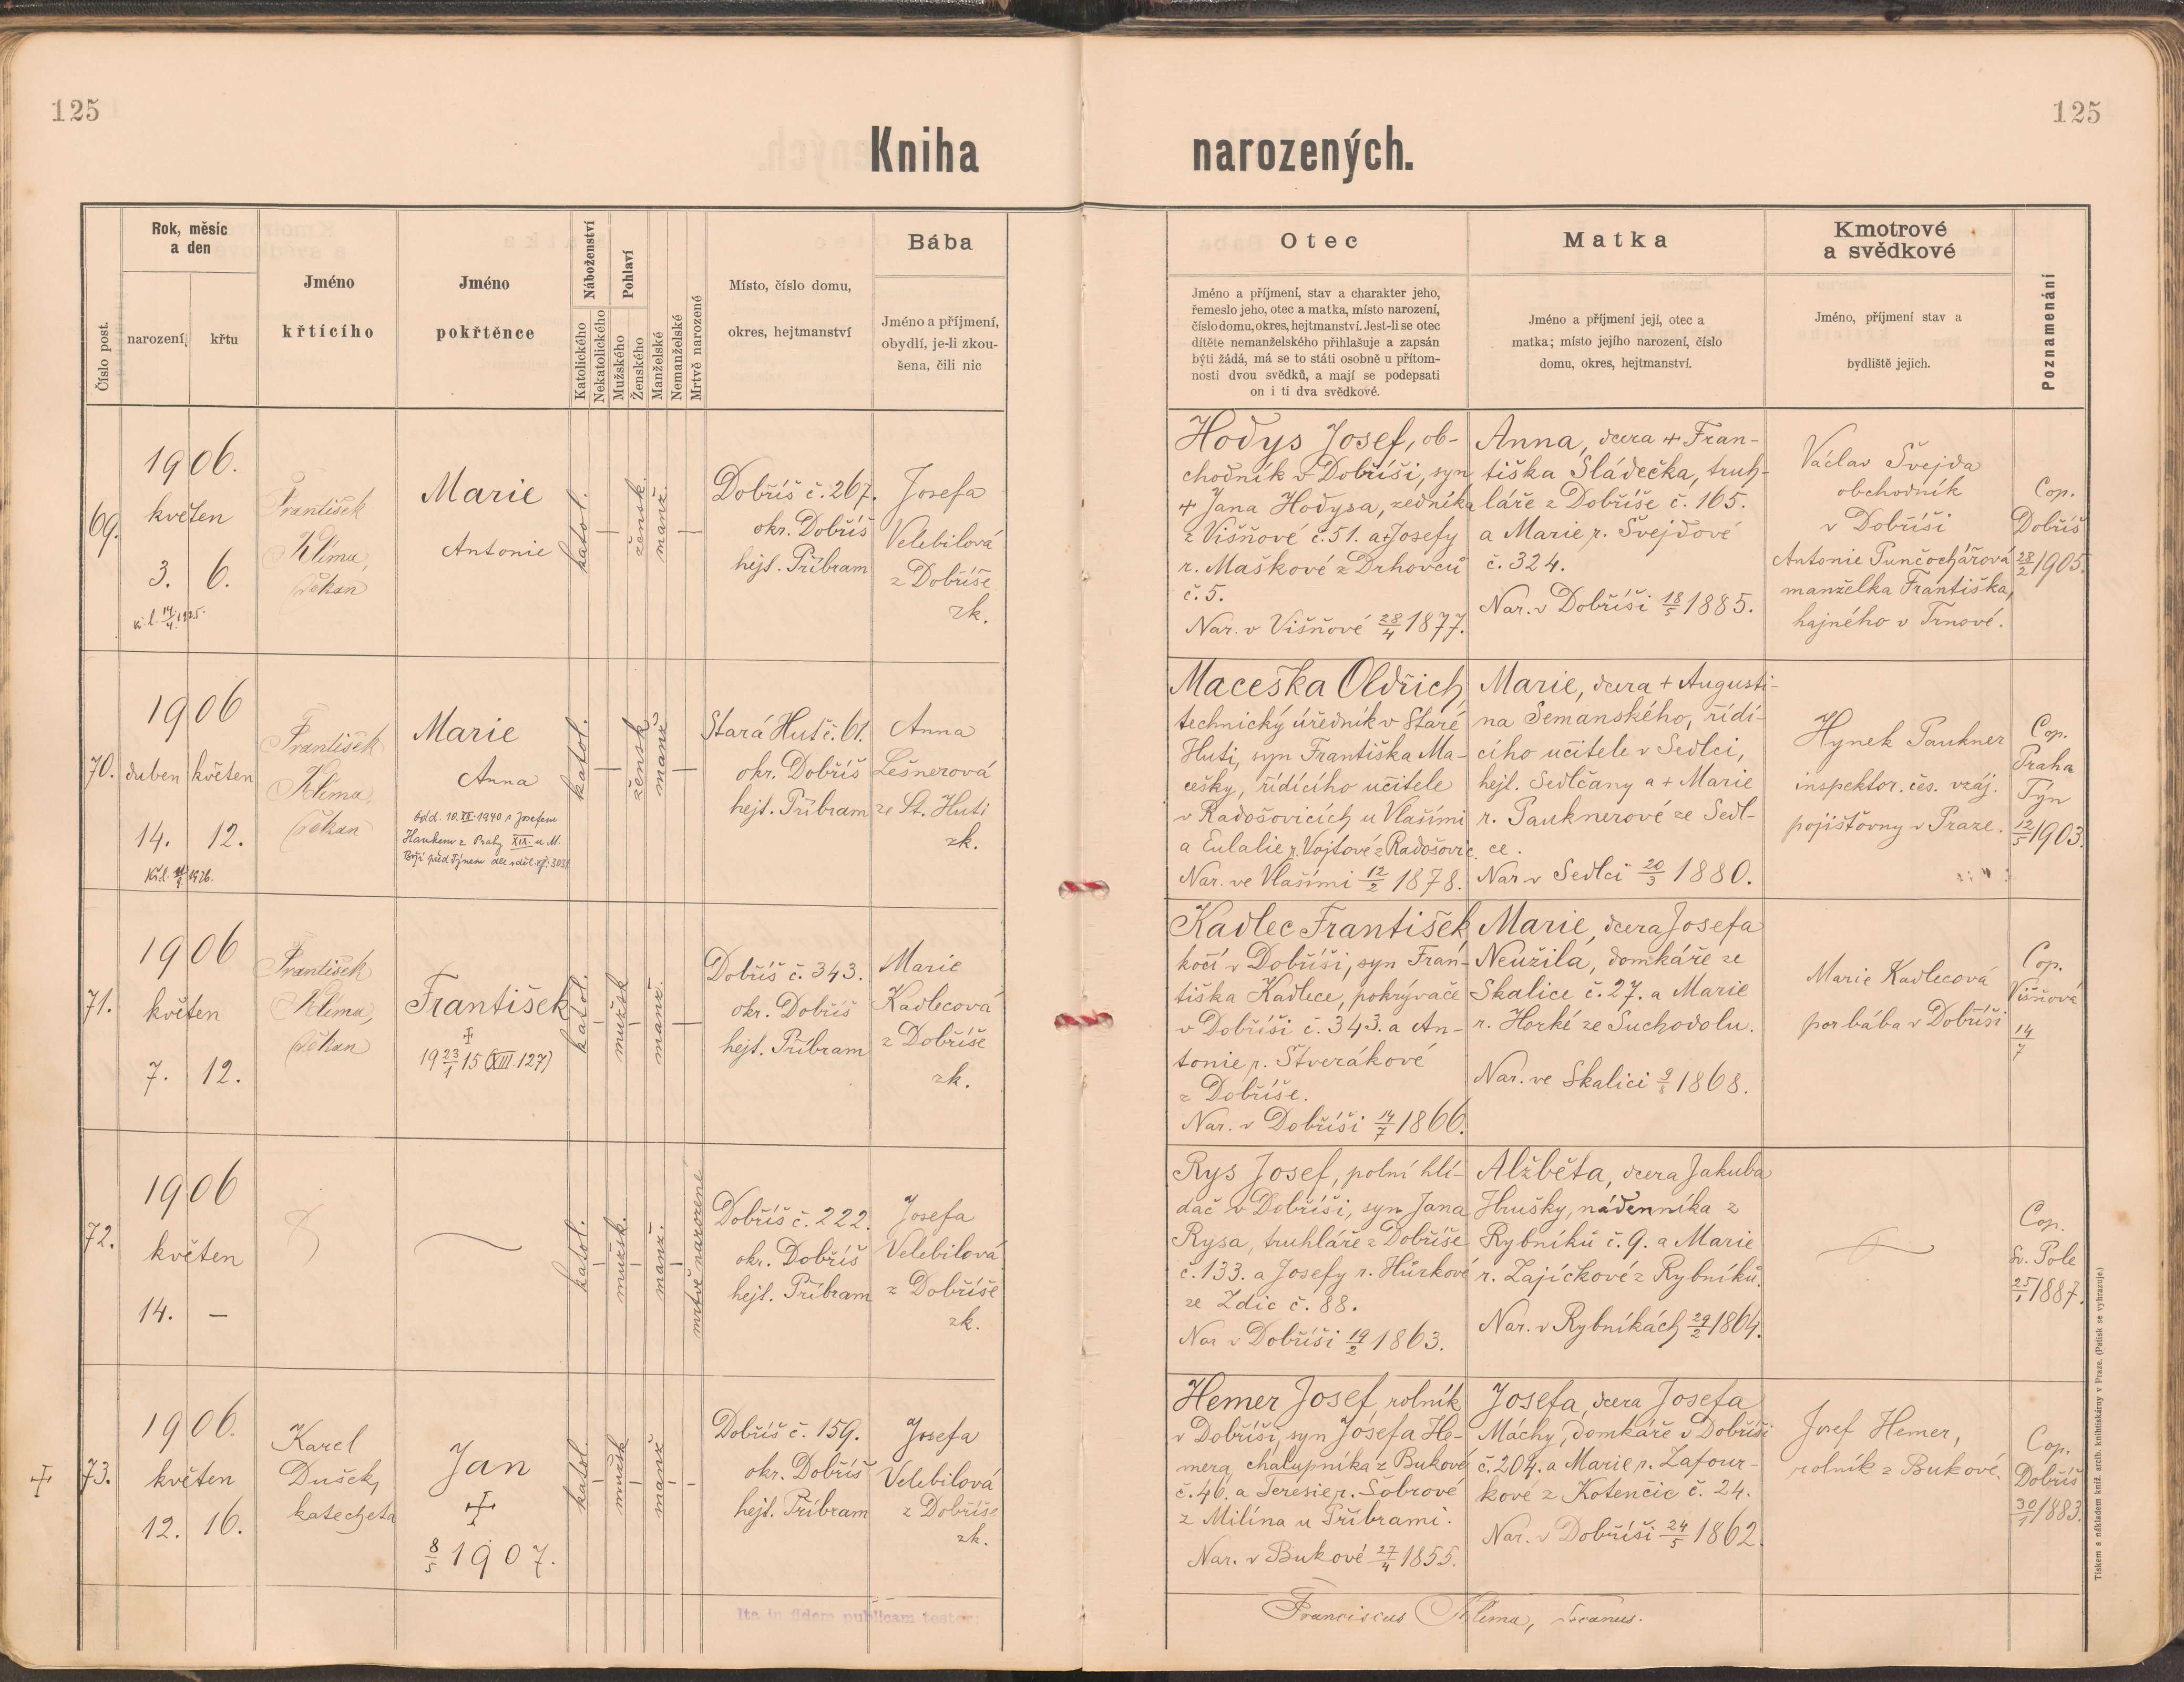 125
125
Kniha
narozených.
Číslo post.
Rok, měsíc
a den
narození
křtu
Jméno
křtícího
Jméno
pokřtěnce
Náboženství
Katolického
Nekatolického
Pohlaví
Mužského
Ženského
Manželské
Nemanželské
Mrtvě narozené
Místo, číslo domu,
okres, hejtmanství
Bába
Jméno a příjmení,
obydlí, je-li zkou-
šena, čili nic
Otec
Jméno a příjmení, stav a charakter jeho,
řemeslo jeho, otec a matka, místo narození,
číslo domu, okres, hejtmanství. Jest-li se otec
dítěte nemanželského přihlašuje a zapsán
býti žádá, má se to státi osobně u přítom-
nosti dvou svědků, a mají se podepsati
on i ti dva svědkové.
Matka
Jméno a příjmení její, otec a
matka; místo jejího narození, číslo
domu, okres, hejtmanství.
Kmotrové
a svědkové
Jméno, příjmení stav a
bydliště jejich.
Poznamenání
69.
1906.
květen
3. 6.
Kř. l. 14/4 1925.
František
Klíma,
děkan
Marie
Antonie
katol.
žensk.
manž.
Dobříš č. 267.
okr. Dobříš
hejt. Příbram
Josefa
Velebilová
z Dobříše
zk.
Hodys Josef, ob-
chodník v Dobříši, syn
+ Jana Hodysa, zedníka
z Višňové č. 51. a + Josefy
r. Maškové z Drhovců
č. 5.
Nar. v Višňové 28/4 1877.
Anna, dcera + Fran-
tiška Sládečka, truh-
láře z Dobříše č. 165.
a Marie r. Švejdové
č. 324.
Nar. v Dobříši 18/5 1885.
Václav Švejda
obchodník
v Dobříši
Antonie Punčochářová
manželka Františka,
hajného v Trnové.
Cop.
Dobříš
28/2 1905.
70.
1906
duben květen
14. 12.
Kř. l. 1926.
František
Klíma,
děkan
Marie
Anna
Odd. 10. 1940 s Josefem
Hankem z Prahy XIX. u M.
B. před Týnem
katol.
žensk
manž
Stará Huť č. 61.
okr. Dobříš
hejt. Příbram
Anna
Lešnerová
ze St. Huti
zk.
Maceška Oldřich,
technický úředník v Staré
Huti, syn Františka Ma-
cešky, řídícího učitele
v Radošovicích u Vlašimi
a Eulalie r. Vojtové z Radošovic.
Nar. ve Vlašimi 12/2 1878.
Marie, dcera + Augusti-
na Semanského, řídí-
cího učitele v Sedlci,
hejt. Sedlčany a + Marie
r. Pauknerové ze Sedl-
ce.
Nar. v Sedlci 20/3 1880.
Hynek Paukner
inspektor. čes. vzáj.
pojišťovny v Praze.
Cop.
Praha
Týn
12/5 1903.
71.
1906
květen
7. 12.
František
Klíma,
děkan
František
+
19 23/1 15 (XIII. 127)
katol.
mužsk
manž.
Dobříš č. 343.
okr. Dobříš
hejt. Příbram
Marie
Kadlecová
z Dobříše
zk.
Kadlec František
kočí v Dobříši, syn Fran-
tiška Kadlece, pokrývače
v Dobříši č. 343. a An-
tonie r. Štverákové
z Dobříše.
Nar. v Dobříši 14/7 1866.
Marie, dcera Josefa
Neužila, domkáře ze
Skalice č. 27. a Marie
r. Horké ze Suchodolu.
Nar. ve Skalici 9/8 1868.
Marie Kadlecová
por bába v Dobříši
Cop.
Višňová
14/7
72.
1906
květen
14. —
katol.
mužsk.
manž.
mrtvě narozené
Dobříš č. 222.
okr. Dobříš
hejt. Příbram
Josefa
Velebilová
z Dobříše
zk.
Rys Josef, polní hlí-
dač v Dobříši, syn Jana
Rysa, truhláře z Dobříše
č. 133. a Josefy r. Hůrkové
ze Zdic č. 88.
Nar. v Dobříši 19/2 1863.
Alžběta, dcera Jakuba
Hrušky, nádenníka z
Rybníků č. 9. a Marie
r. Zajíčkové z Rybníků.
Nar. v Rybníkách 29/2 1864.
Cop.
Sv. Pole
25/1 1887.
+ 73.
1906.
květen
12. 16.
Karel
Dušek,
katecheta
Jan
+
8/5 1907.
katol.
mužsk
manž
Dobříš č. 159.
okr. Dobříš
hejt. Příbram
Josefa
Velebilová
z Dobříše
zk.
Hemer Josef, rolník
v Dobříši, syn Josefa He-
mera, chalupníka z Bukové
č. 46. a Teresie r. Šobrové
z Milína u Příbrami.
Nar. v Bukové 27/4 1855.
Josefa, dcera Josefa
Máchy, domkáře v Dobříši
č. 204. a Marie r. Zafour-
kové z Kotenčic č. 24.
Nar. v Dobříši 24/5 1862.
Josef Hemer,
rolník z Bukové.
Cop.
Dobříš
30/1 1883.
Ita in fidem publicam testor:
Franciscus Klíma, decanus.
Tiskem a nákladem kníž. arcib. knihtiskárny v Praze. (Patisk se vyhrazuje.)